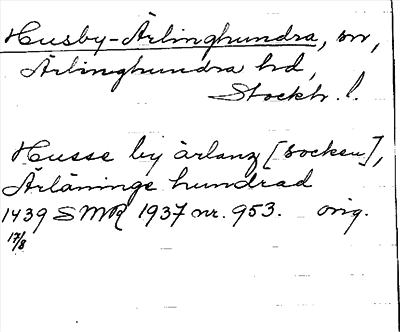 Husby-Ärlinghundra, sn,
Ärlinghundra hd,
Stockh. l.
Husse by ärlang [socken],
Ärläninge hundrad
1439 SMR 1937 nr. 953. orig.
17/8